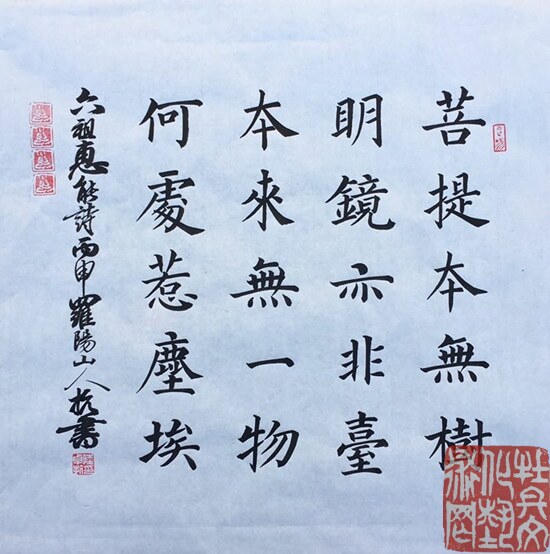 菩提本無樹
明鏡亦非臺
本來無一物
何處惹塵埃
六祖惠能詩丙申羅陽山人振書